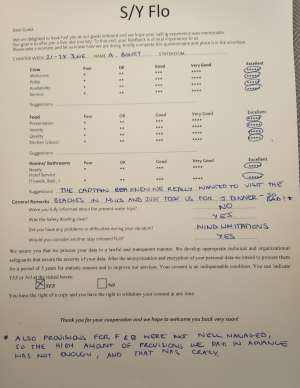 S/Y Flo
Dear Guest,
We are delighted to have had you as our guests onboard and we hope your sailing experience was memorable.
Please take a moment and let us know how we are doing. Kindly complete this questionnaire and place it in the envelope.
CHARTER WEEK 21-28 JUNE NAME A.
Crew Poor OK Good Very Good Excellent
Welcome * ** *** **** *****
* ** *** **** *****
Availability * ** *** **** *****
Service * ** *** **** *****
Suggestions
Food Poor OK Good Very Good Excellent
Presentation * ** *** **** *****
Variety * ** *** **** *****
Quality * ** *** **** *****
* ** *** **** *****
Suggestions
Rooms/ Bathrooms Poor OK Good Very Good Excellent
* ** *** **** *****
Hotel Service * ** *** **** *****
Suggestions THE CAPTAIN KNEW WE REALLY WANTED TO VISIT THE
General Remarks BEACHES IN MILOS AND JUST TOOK US FOR 1 DINNER - SO BAD! *
Were you fully informed about the present water toys? NO
Was the Safety Briefing clear? YES
Did you have any problems or difficulties during your vacation? WIND LIMITATIONS
Would you consider another stay onboard FLO? YES
We assure you that we process your data in a lawful and transparent manner. We develop appropriate technical and organizational
safeguards that ensure the security of your data. After the anonymization and encryption of your personal data we intend to process them
for a period of 5 years for statistic reasons and to improve our services. Your consent is an indispensable condition. You can indicate
YES or NO at the ticked boxes:
YES NO
You have the right of a copy and you have the right to withdraw your consent at any time.
Thank you for your cooperation and we hope to welcome you back very soon!
* ALSO PROVISIONS FOR F&B WERE NOT WELL MANAGED,
SO THE HIGH AMOUNT OF PROVISIONS WE PAID IN ADVANCE
WAS NOT ENOUGH, AND THAT WAS CRAZY.